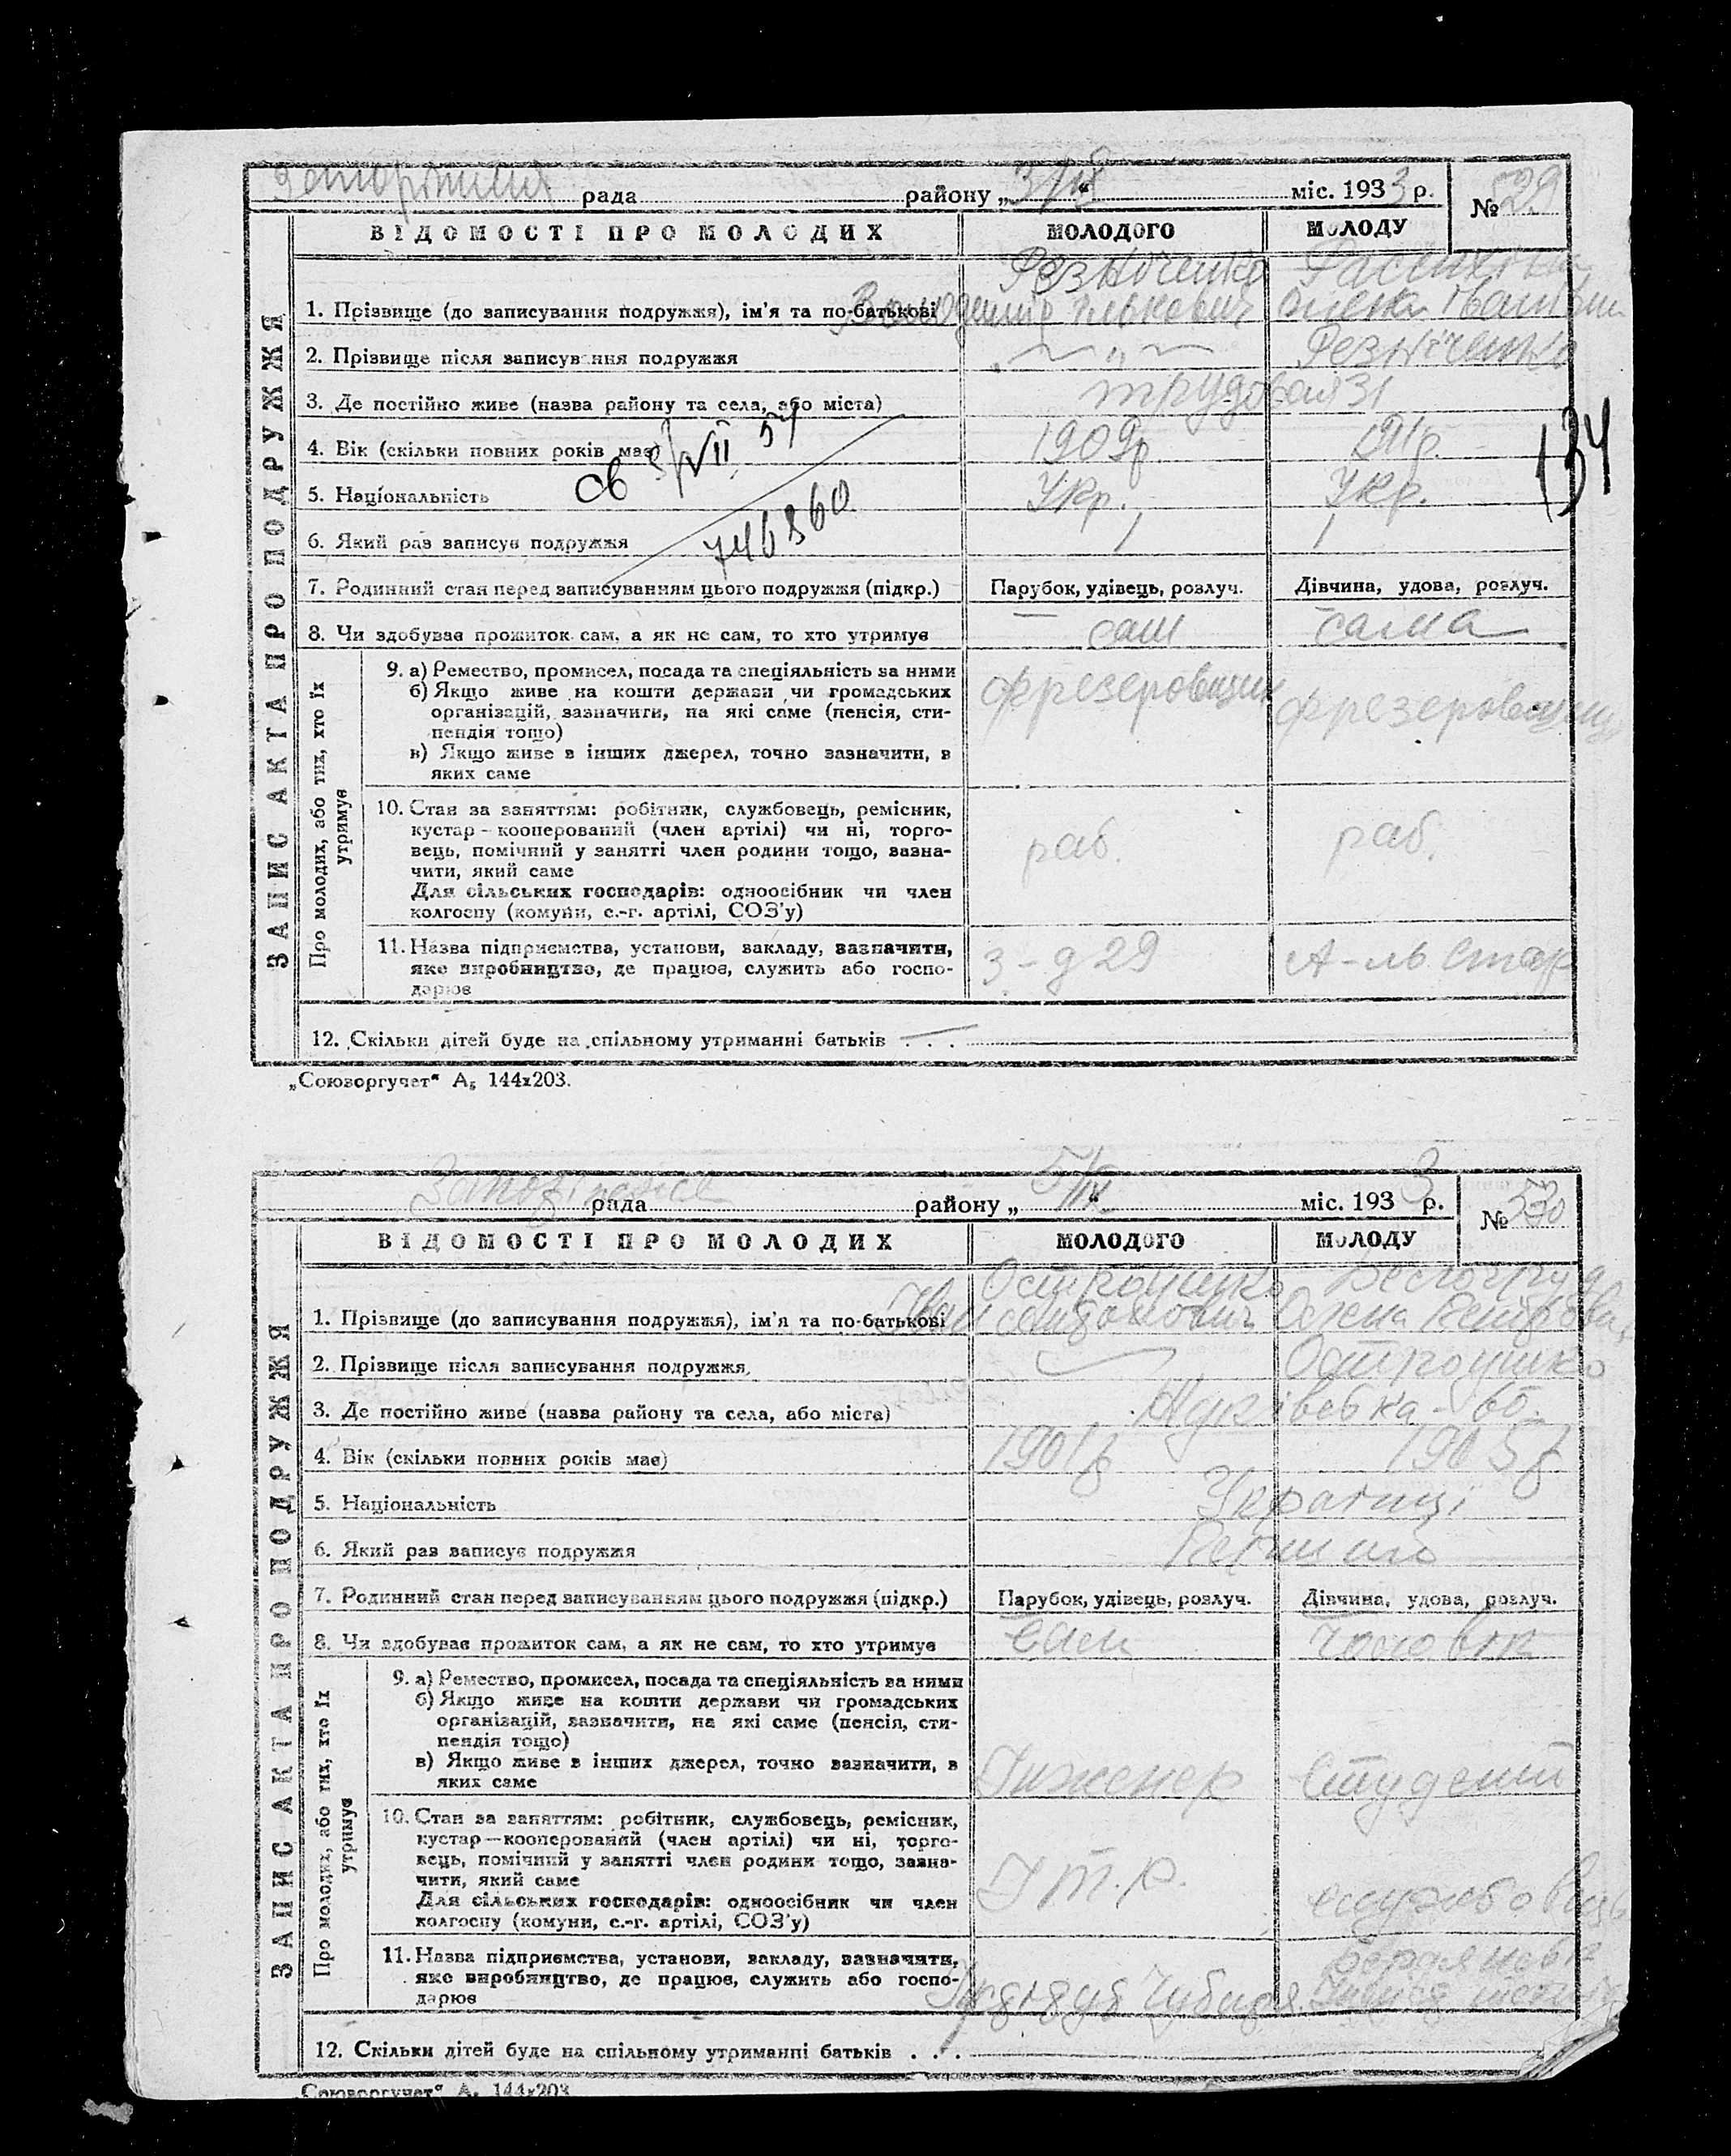 рада району „ “ міс. 1933 р. № 529
ВІДОМОСТІ ПРО МОЛОДИХ МОЛОДОГО МОЛОДУ
ЗАПИС АКТА ПРО ПОДРУЖЖЯ
Резніченко
1. Прізвище (до записування подружжя), ім'я та по-батькові Іванівна
2. Прізвище після записування подружжя „ Резніченко
3. Де постійно живе (назва району та села, або міста) трудовая 31
4. Вік (скільки повних років має) 1909р. 1911р.
5. Національність Укр. Укр.
6. Який раз записує подружжя 1 1
746860
134
7. Родинний стан перед записуванням цього подружжя (підкр.) Парубок, удівець, розлуч. Дівчина, удова, розлуч.
8. Чи здобуває прожиток сам, а як не сам, то хто утримує сам сама
Про молодих, або тих, хто їх утримує
9. а) Ремество, промисел, посада та спеціяльність за ними
б) Якщо живе на кошти держави чи громадських
організацій, зазначити, на які саме (пенсія, сти-
пендія тощо)
в) Якщо живе з інших джерел, точно зазначити, з
яких саме
фрезеровщик
10. Стан за заняттям: робітник, службовець, ремісник,
кустар – кооперований (член артілі) чи ні, торго-
вець, помічний у занятті член родини тощо, зазна-
чити, який саме
Для сільських господарів: одноосібник чи член
колгоспу (комуни, с.-г. артілі, СОЗ'у)
раб. раб.
11. Назва підприємства, установи, закладу, зазначити,
яке виробництво, де працює, служить або госпо-
дарює
з-д 29
12. Скільки дітей буде на спільному утриманні батьків . . .
„Союзоргучет“ А₅ 144x203.
рада району „ 5/IX “ міс. 1933 р. № 530
ВІДОМОСТІ ПРО МОЛОДИХ МОЛОДОГО МОЛОДУ
ЗАПИС АКТА ПРО ПОДРУЖЖЯ
Остроушко
1. Прізвище (до записування подружжя), ім'я та по-батькові Іван
2. Прізвище після записування подружжя Остроушко
3. Де постійно живе (назва району та села, або міста)
4. Вік (скільки повних років має) 1901р 1905р
5. Національність Українці
6. Який раз записує подружжя
7. Родинний стан перед записуванням цього подружжя (підкр.) Парубок, удівець, розлуч. Дівчина, удова, розлуч.
8. Чи здобуває прожиток сам, а як не сам, то хто утримує Сам Чоловік
Про молодих, або тих, хто їх утримує
9. а) Ремество, промисел, посада та спеціяльність за ними
б) Якщо живе на кошти держави чи громадських
організацій, зазначити, на які саме (пенсія, сти-
пендія тощо)
в) Якщо живе з інших джерел, точно зазначити, з
яких саме
Інженер Студент
10. Стан за заняттям: робітник, службовець, ремісник,
кустар — кооперований (член артілі) чи ні, торго-
вець, помічний у занятті член родини тощо, зазна-
чити, який саме
Для сільських господарів: одноосібник чи член
колгоспу (комуни, с.-г. артілі, СОЗ'у)
І т. р. службовець
11. Назва підприємства, установи, закладу, зазначити,
яке виробництво, де працює, служить або госпо-
дарює
12. Скільки дітей буде на спільному утриманні батьків . . .
Союзоргучет“ А₅ 144x203